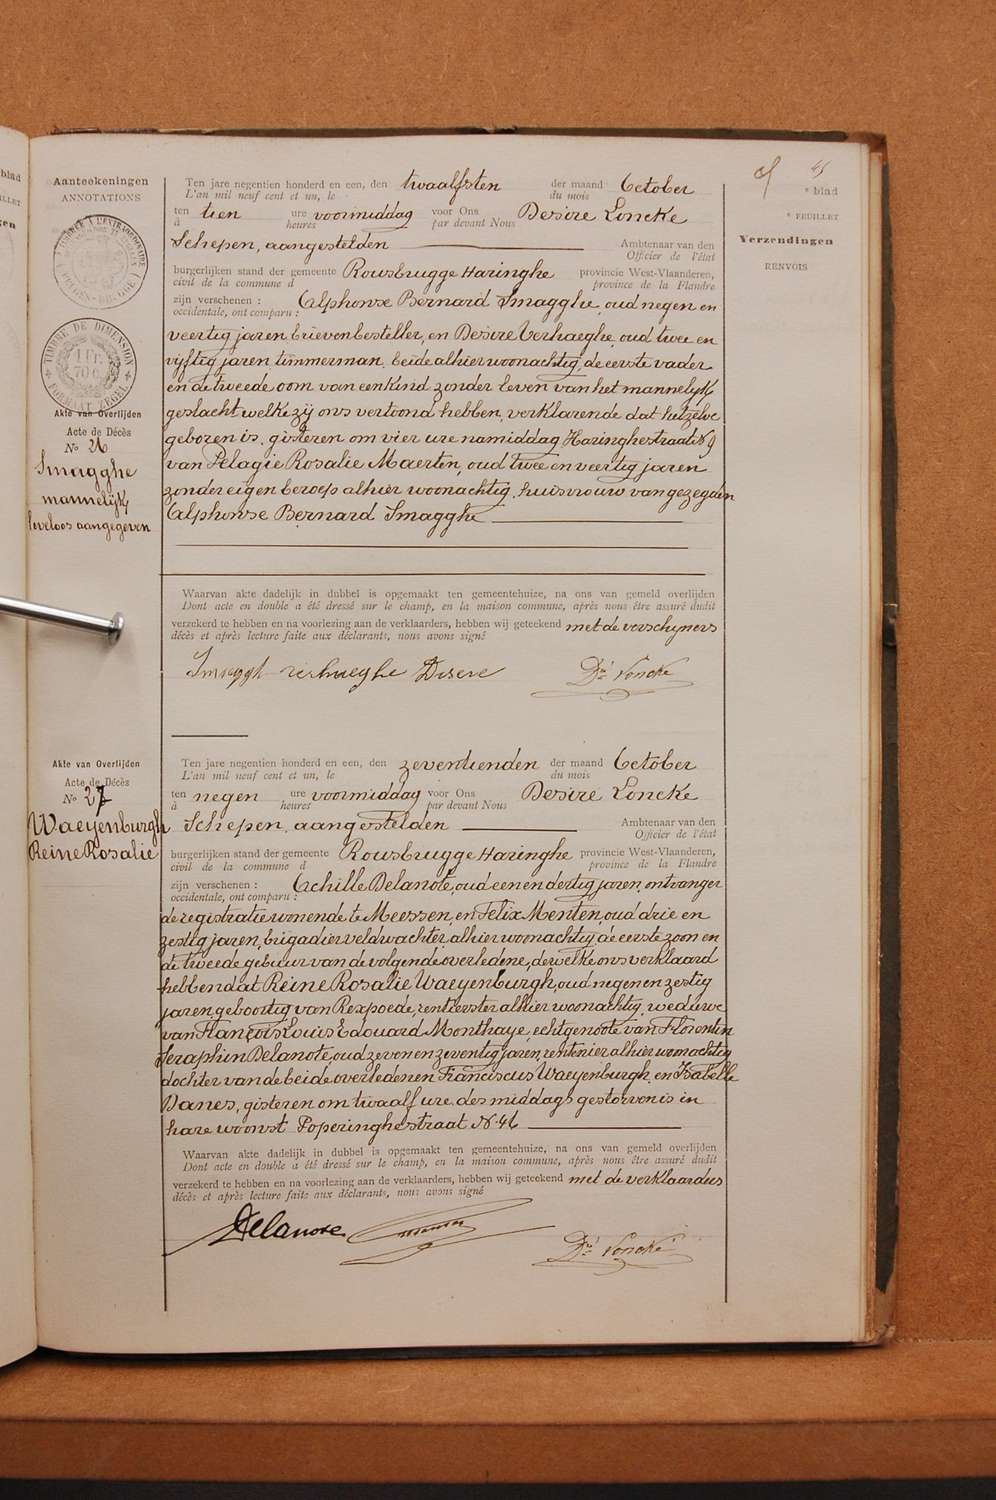 blad
Aanteekeningen
ANNOTATIONS
TIMBRE DE DIMENSION
1 Fr.
70 c.
FORMAAT ZEGEL
Akte van Overlijden
Acte de Décès
No 26
Smagghe
mannelijk
leveloos aangegeven
45
e blad
e FEUILLET
Verzendingen
RENVOIS
Ten jare negentien honderd en een, den twaalfsten der maand October
L'an mil neuf cent et un, le du mois
ten tien ure voormiddag voor Ons Desire Loncke
à heures par devant Nous
Schepen, aangestelden Ambtenaar van den
Officier de l'état
burgerlijken stand der gemeente Rousbrugge Haringhe provincie West-Vlaanderen,
civil de la commune d province de la Flandre
zijn verschenen : Alphonse Bernard Smagghe, oud negen en
occidentale, ont comparu :
veertig jaren brievenbesteller, en Desire Verhaeghe oud twee en
vijftig jaren, timmerman, beide alhier woonachtig, de eerste vader
en de tweede oom van een kind zonder leven van het mannelijk
geslacht welke zij ons vertoond hebben, verklarende dat hetzelve
geboren is, gisteren om vier ure namiddag Haringhestraat N 9
van Pelagie Rosalie Maerten, oud twee en veertig jaren
zonder eigen beroep alhier woonachtig, huisvrouw van gezegden
Alphonse Bernard Smagghe
Waarvan akte dadelijk in dubbel is opgemaakt ten gemeentehuize, na ons van gemeld overlijden
Dont acte en double a été dressé sur le champ, en la maison commune, après nous être assuré dudit
verzekerd te hebben en na voorlezing aan de verklaarders, hebben wij geteekend met de verschijners
décès et après lecture faite aux déclarants, nous avons signé
Smaggh verhaeghe Disere Dré Loncke
Akte van Overlijden
Acte de Décès
No 27
Waeyenburgh
Reine Rosalie
Ten jare negentien honderd en een, den zeventienden der maand October
L'an mil neuf cent et un, le du mois
ten negen ure voormiddag voor Ons Desire Loncke
à heures par devant Nous
Schepen, aangestelden Ambtenaar van den
Officier de l'état
burgerlijken stand der gemeente Rousbrugge Haringhe provincie West-Vlaanderen,
civil de la commune d province de la Flandre
zijn verschenen : Achille Delanote, oud een en dertig jaren, ontvanger
occidentale, ont comparu :
de registratie wonende te Meessen, en Felix Menten, oud drie en
zestig jaren, brigadier veldwachter, alhier woonachtig de eerste zoon en
de tweede gebuur van de volgende overledene, dewelke ons verklaard
hebben dat Reine Rosalie Waeyenburgh, oud negen en zestig
jaren, geboortig van Rexpoede, rentierster alhier woonachtig, weduwe
van François Louis Edouard Monthaye, echtgenote van Florentin
Seraphin Delanote, oud zeven en zeventig jaren, rentenier alhier woonachtig
dochter van de beide overledenen Franciscus Waeyenburgh, en Isabelle
Danes, gisteren om twaalf ure des middags gestorven is in
hare woonst Poperinghestraat N. 46
Waarvan akte dadelijk in dubbel is opgemaakt ten gemeentehuize, na ons van gemeld overlijden
Dont acte en double a été dressé sur le champ, en la maison commune, après nous être assuré dudit
verzekerd te hebben en na voorlezing aan de verklaarders, hebben wij geteekend met de verklaarders
décès et après lecture faite aux déclarants, nous avons signé
Delanote Dré Loncke